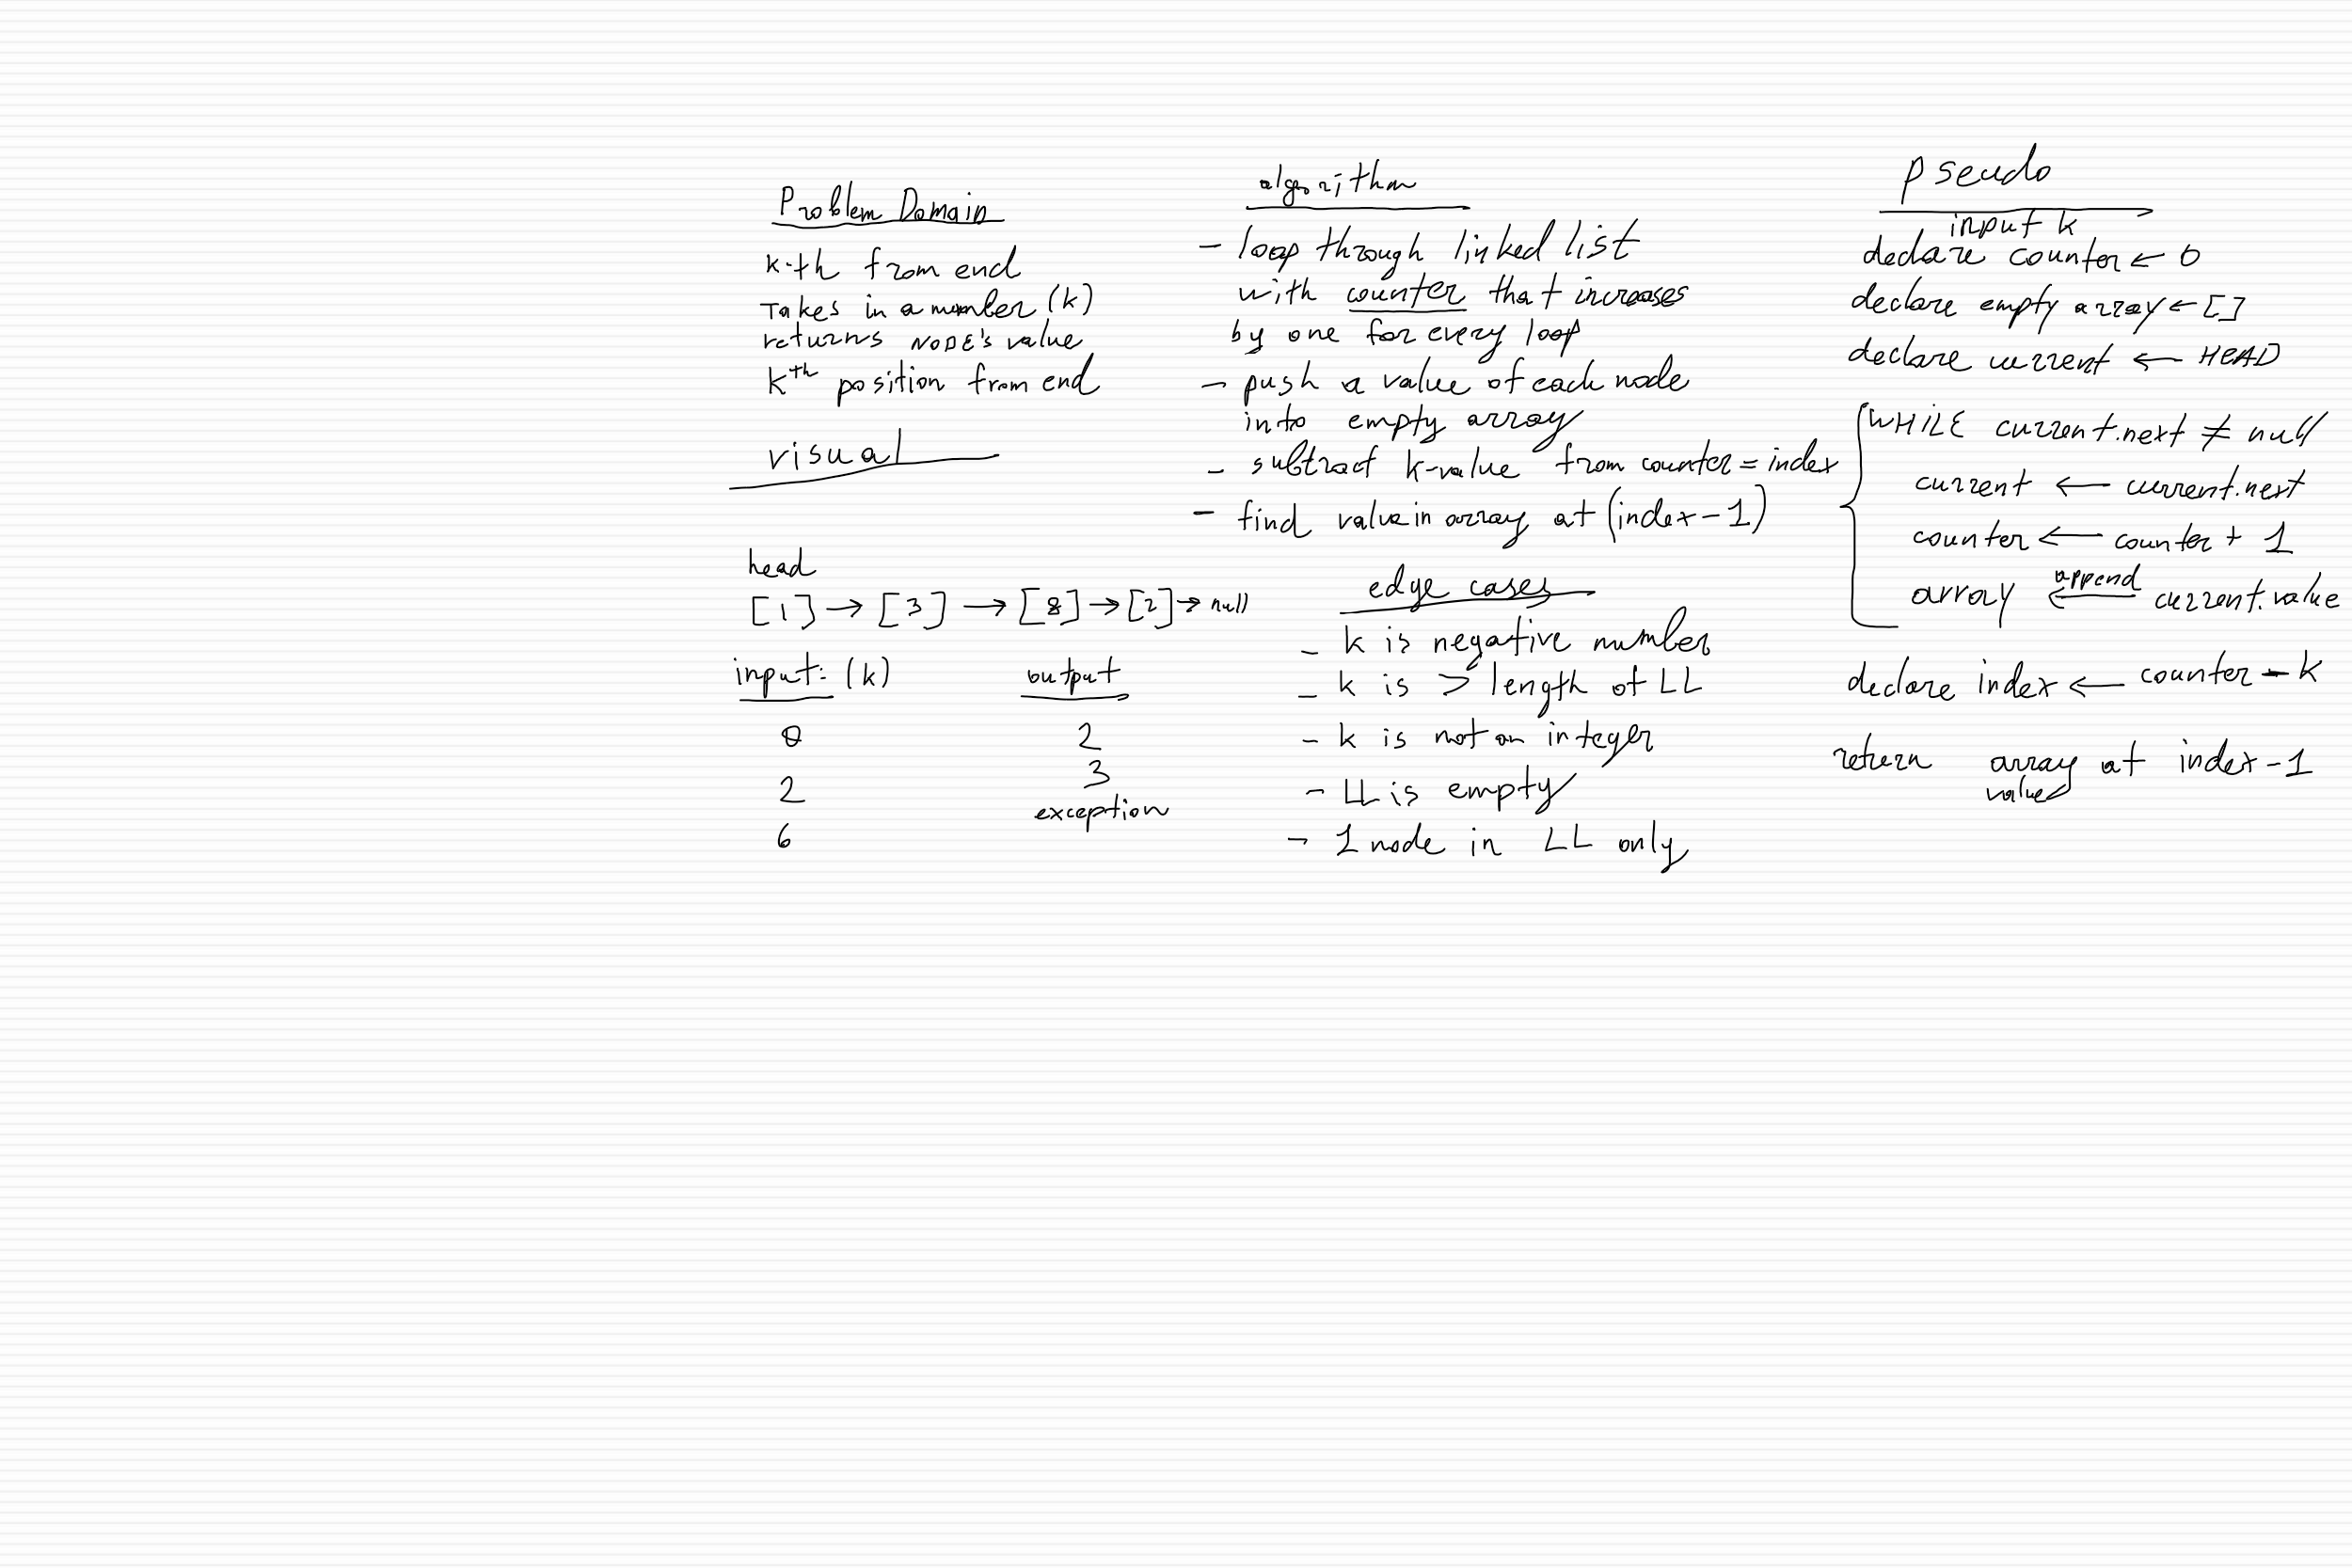 Problem Domain
k-th from end
Takes in a number (k)
returns NODE's value
kth position from end
visual
head
[1] → [3] → [8] → [2] → null
input: (k) output
0 2
2 3
6 exception
algorithm
- loop through linked list
with counter that increases
by one for every loop
- push a value of each node
into empty array
- subtract k-value from counter = index
- find value in array at (index-1)
edge cases
- k is negative number
- k is > length of LL
- k is not an integer
- LL is empty
- 1 node in LL only
pseudo
input k
declare counter ← 0
declare empty array ← []
declare current ← HEAD
WHILE current.next ≠ null
current ← current.next
counter ← counter + 1
array append ← current.value
declare index ← counter - k
return array at index-1
value